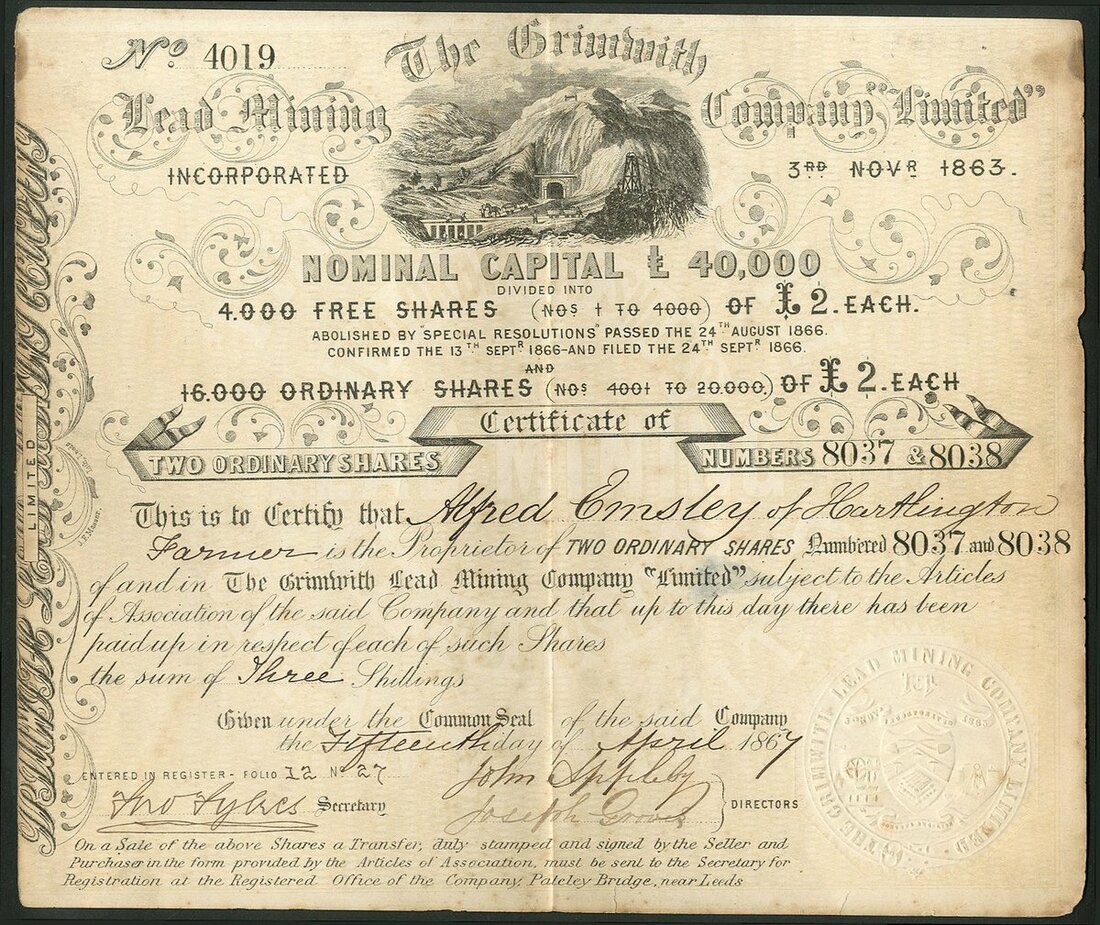 No. 4019
The Grimwith
Lead Mining Company "Limited"
INCORPORATED 3RD NOVR 1863.
NOMINAL CAPITAL £ 40,000
DIVIDED INTO
4.000 FREE SHARES (NOS 1 TO 4000) OF £ 2. EACH.
ABOLISHED BY "SPECIAL RESOLUTIONS" PASSED THE 24TH AUGUST 1866.
CONFIRMED THE 13TH SEPTR 1866-AND FILED THE 24TH SEPTR 1866.
AND
16.000 ORDINARY SHARES (NOS 4001 TO 20.000.) OF £ 2. EACH
Certificate of
TWO ORDINARY SHARES NUMBERS 8037 & 8038
This is to Certify that Alfred Emsley of Hartlington
Farmer is the Proprietor of TWO ORDINARY SHARES Numbered 8037 and 8038
of and in The Grimwith Lead Mining Company "Limited" subject to the Articles
of Association of the said Company and that up to this day there has been
paid up in respect of each of such Shares
the sum of Three Shillings
Given under the Common Seal of the said Company
the Fifteenth day of April 1867
ENTERED IN REGISTER - FOLIO 12 No 27
John Appleby
Jno Sykes Secretary
Joseph Grover
DIRECTORS
On a Sale of the above Shares a Transfer, duly stamped and signed by the Seller and
Purchaser in the form provided by the Articles of Association, must be sent to the Secretary for
Registration at the Registered Office of the Company, Pateley Bridge, near Leeds
THE GRIMWITH LEAD MINING COMPANY LIMITED
LIMITED